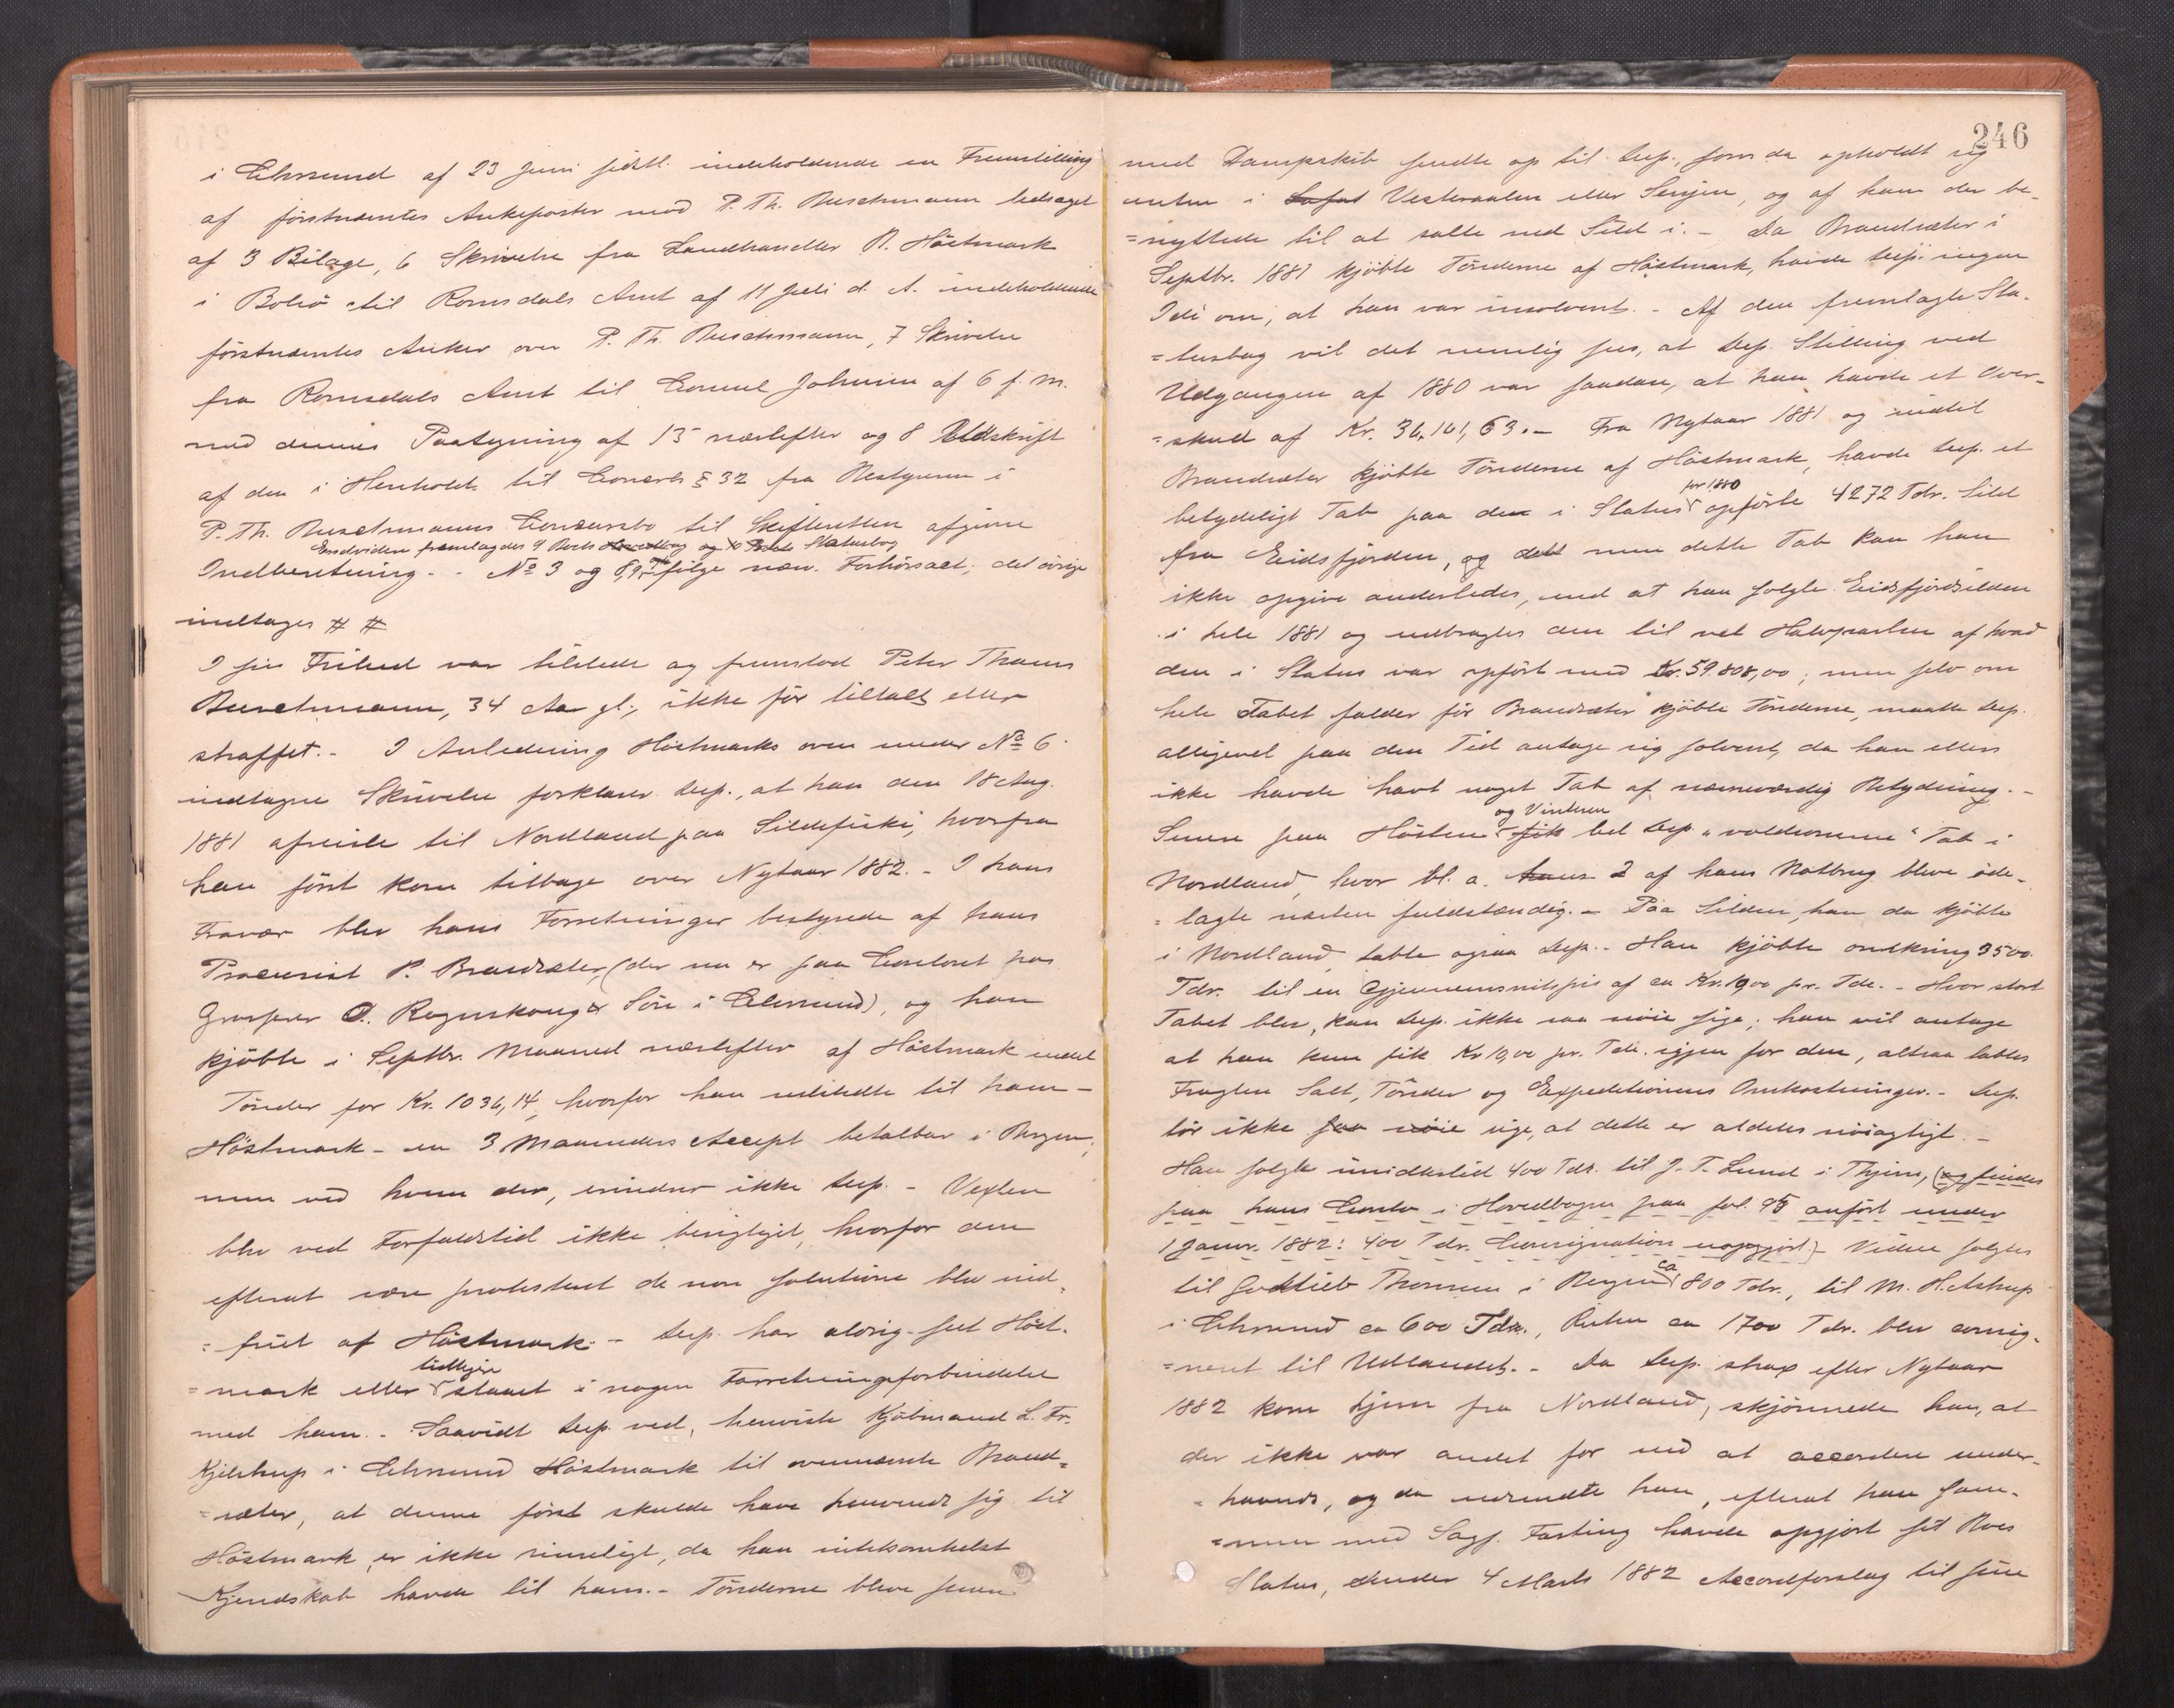 i Chrsund af 23 Juni sidstl. indeholdende en Fremstilling
af förstnævntes Ankeposter mod P. Th. Buschmann ledsaget
af 3 Bilage, 6 Skrivelse fra Landhandler R. Höstmark
i Bolsö til Romsdals Amt af 11 Juli d. A. indeholdende
förstnævntes Anker over P. Th. Buschmann, 7 Skrivelse
fra Romsdals Amt til Consul Johnsen af 6 f. M.
med dennes Paategning af 15 næstefter og 8 Udskrift
af den i Henhold til Concursl. § 32 fra Bestyreren i
P. Th. Buschmanns Concursbo til Skifteretten afgivne
Endvidere fremlagdes 9 Boets Hovedbog og 10 Boets Statusbog
Indberetning. - No 3 og 8, 9, 10 følge næv. Forhörsact, det övrige
indtages # #
I sin Frihed var tilstede og fremstod Peter Thams
Buschmann, 34 Aar gl., ikke för tiltalt eller
straffet. - I Anledning Höstmarks oven under No 6
indtagne Skrivelse forklarer Dep., at han den 18 Aug.
1881 afreiste til Nordland paa Sildefiske, hvorfra
han först kom tilbage over Nytaar 1882. - I hans
Fravær blev hans Forretninger bestyrede af hans
Procurist P. Brandsæter, (der nu er paa Contoret hos
Grosserer O. Rognskoug & Sön i Chrsund), og han
kjöbte i Septbr. Maaned næstefter af Höstmark endel
Tönder for Kr. 1036,14, hvorfor han udstedte til ham -
Höstmark - en 3 Maaneders Accept betalbar i Bergen,
men ved hvem der, erindrer ikke Dep. - Vexlen
blev ved Forfaldstid ikke berigtiget, hvorfor den
efterat være protesteret de non solutione blev ind-
=friet af Höstmark. - Dep. har aldrig seet Höst-
tidligere
=mark eller staaet i nogen Forretningsforbindelse
med ham. - Saavidt Dep. ved, henviste Kjöbmand L. Fr.
Kjelstrup i Chrsund Höstmark til ovennævnte Brand=
=sæter, at denne först skulde have henvendt sig til
Höstmark er ikke rimeligt, da han intetsomhelst
Kjendskab havde til ham. - Tönderne bleve senere
246
med Dampskib sendte op til Dep., som da opholdt sig
enten i Lofot Vesteraalen eller Senjen, og af ham der be-
=nyttede til at salte ned Sild i. - Da Brandsæter i
Septbr. 1881 kjöbte Tönderne af Höstmark, havde Dep. ingen
Ide om, at han var insolvent. - Af den fremlagte Sta-
=tusbog vil det nemlig sees, at Dep. Stilling ved
Udgangen af 1880 var saadan, at han havde et Over-
=skud af Kr. 36,101,63. - Fra Nytaar 1881 og indtil
Brandsæter kjöbte Tönderne af Höstmark, havde Dep. et
for 1880
betydeligt Tab paa den i Status opförte 4272 Tdr. Sild
fra Eidsfjorden, og det men dette Tab kan han
ikke opgive anderledes, end at han solgte Eidsfjordsilden
i hele 1881 og indbragtes den til vel Halvparten af hvad
den i Status var opfört med Kr. 59.808,00; men selv om
hele Tabet falder för Brandsæter kjöbte Tönderne, maatte Dep.
alligevel paa den Tid antage sig solvent, da han ellers
ikke havde havt noget Tab af nævneværdig Betydning. -
og Vinteren
Senere paa Hösten fik led Dep. "voldsomme" Tab i
Nordland, hvor bl. a. hans 2 af hans Notbrug bleve öde-
=lagte næsten fuldstændig. - Paa Silden han da kjöbte
i Nordland, tabte ogsaa Dep. - Han kjöbte omkring 3500
Tdr. til en Gjennemsnitspris af ca Kr. 19,00 pr. Tde. - Hvor stort
Tabet blev, kan Dep. ikke saa nöie sige; han vil antage
at han kun fik Kr 10,00 pr. Tde. igjen for den, altsaa tabtes
Fragten Salt, Tönder og Expeditionens Omkostninger. - Dep.
tör ikke saa nöie sige, at dette er aldeles nöiagtigt. -
Han solgte imidlertid 400 Tdr. til J. T. Lund i Thjem, (og findes
paa hans Conto i Hovedbogen paa fol. 95 anfört under
1 Januar. 1882: 400 Tdr. Consignation uopgjort). Videre solgtes
ca
til Gottlieb Thomsen i Bergen 800 Tdr., til M. H. Astrup
i Chrsund ca 600 Tdr., Resten ca 1700 Tdr. blev consig-
=neret til Udlandet. - Da Dep. strax efter Nytaar
1882 kom hjem fra Nordland, skjönnede han, at
der ikke var andet for end at accordere under-
=haands, og da udsendte han, efterat han sam-
=men med Sagf. Fasting havde opgjort sit Boes
Status, under 4 Marts 1882 Accordforslag til sine